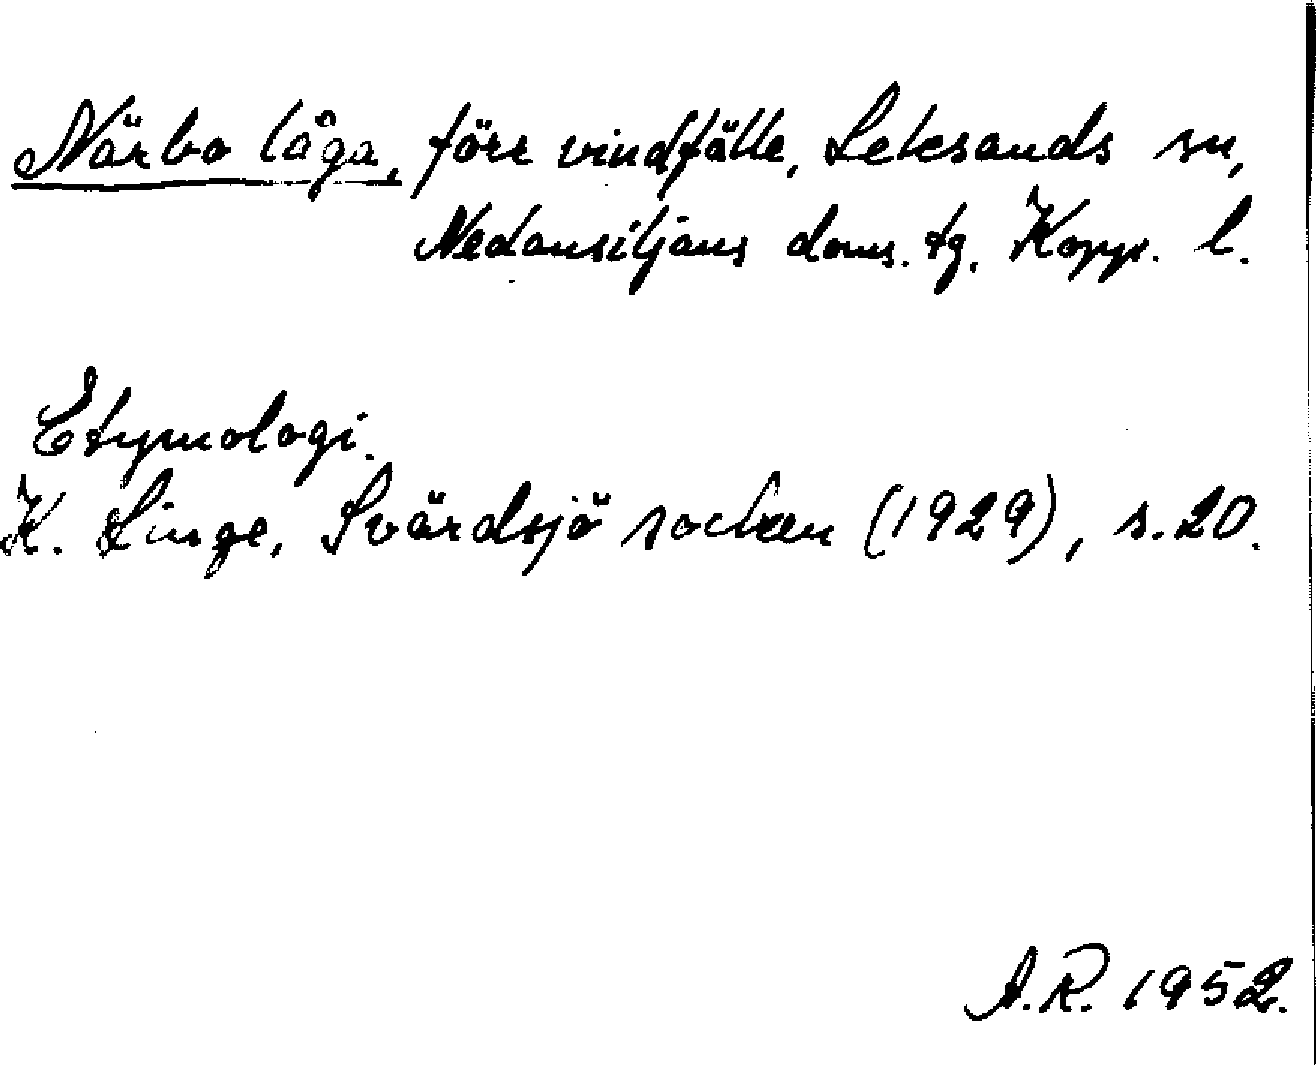 Närbo låga, förr vindfälle, Leksands sn,
Nedansiljans doms. tg, Kopp. l.
Etymologi.
K. Linge, Svärdsjö socken (1929), s. 20.
A.R. 1952.